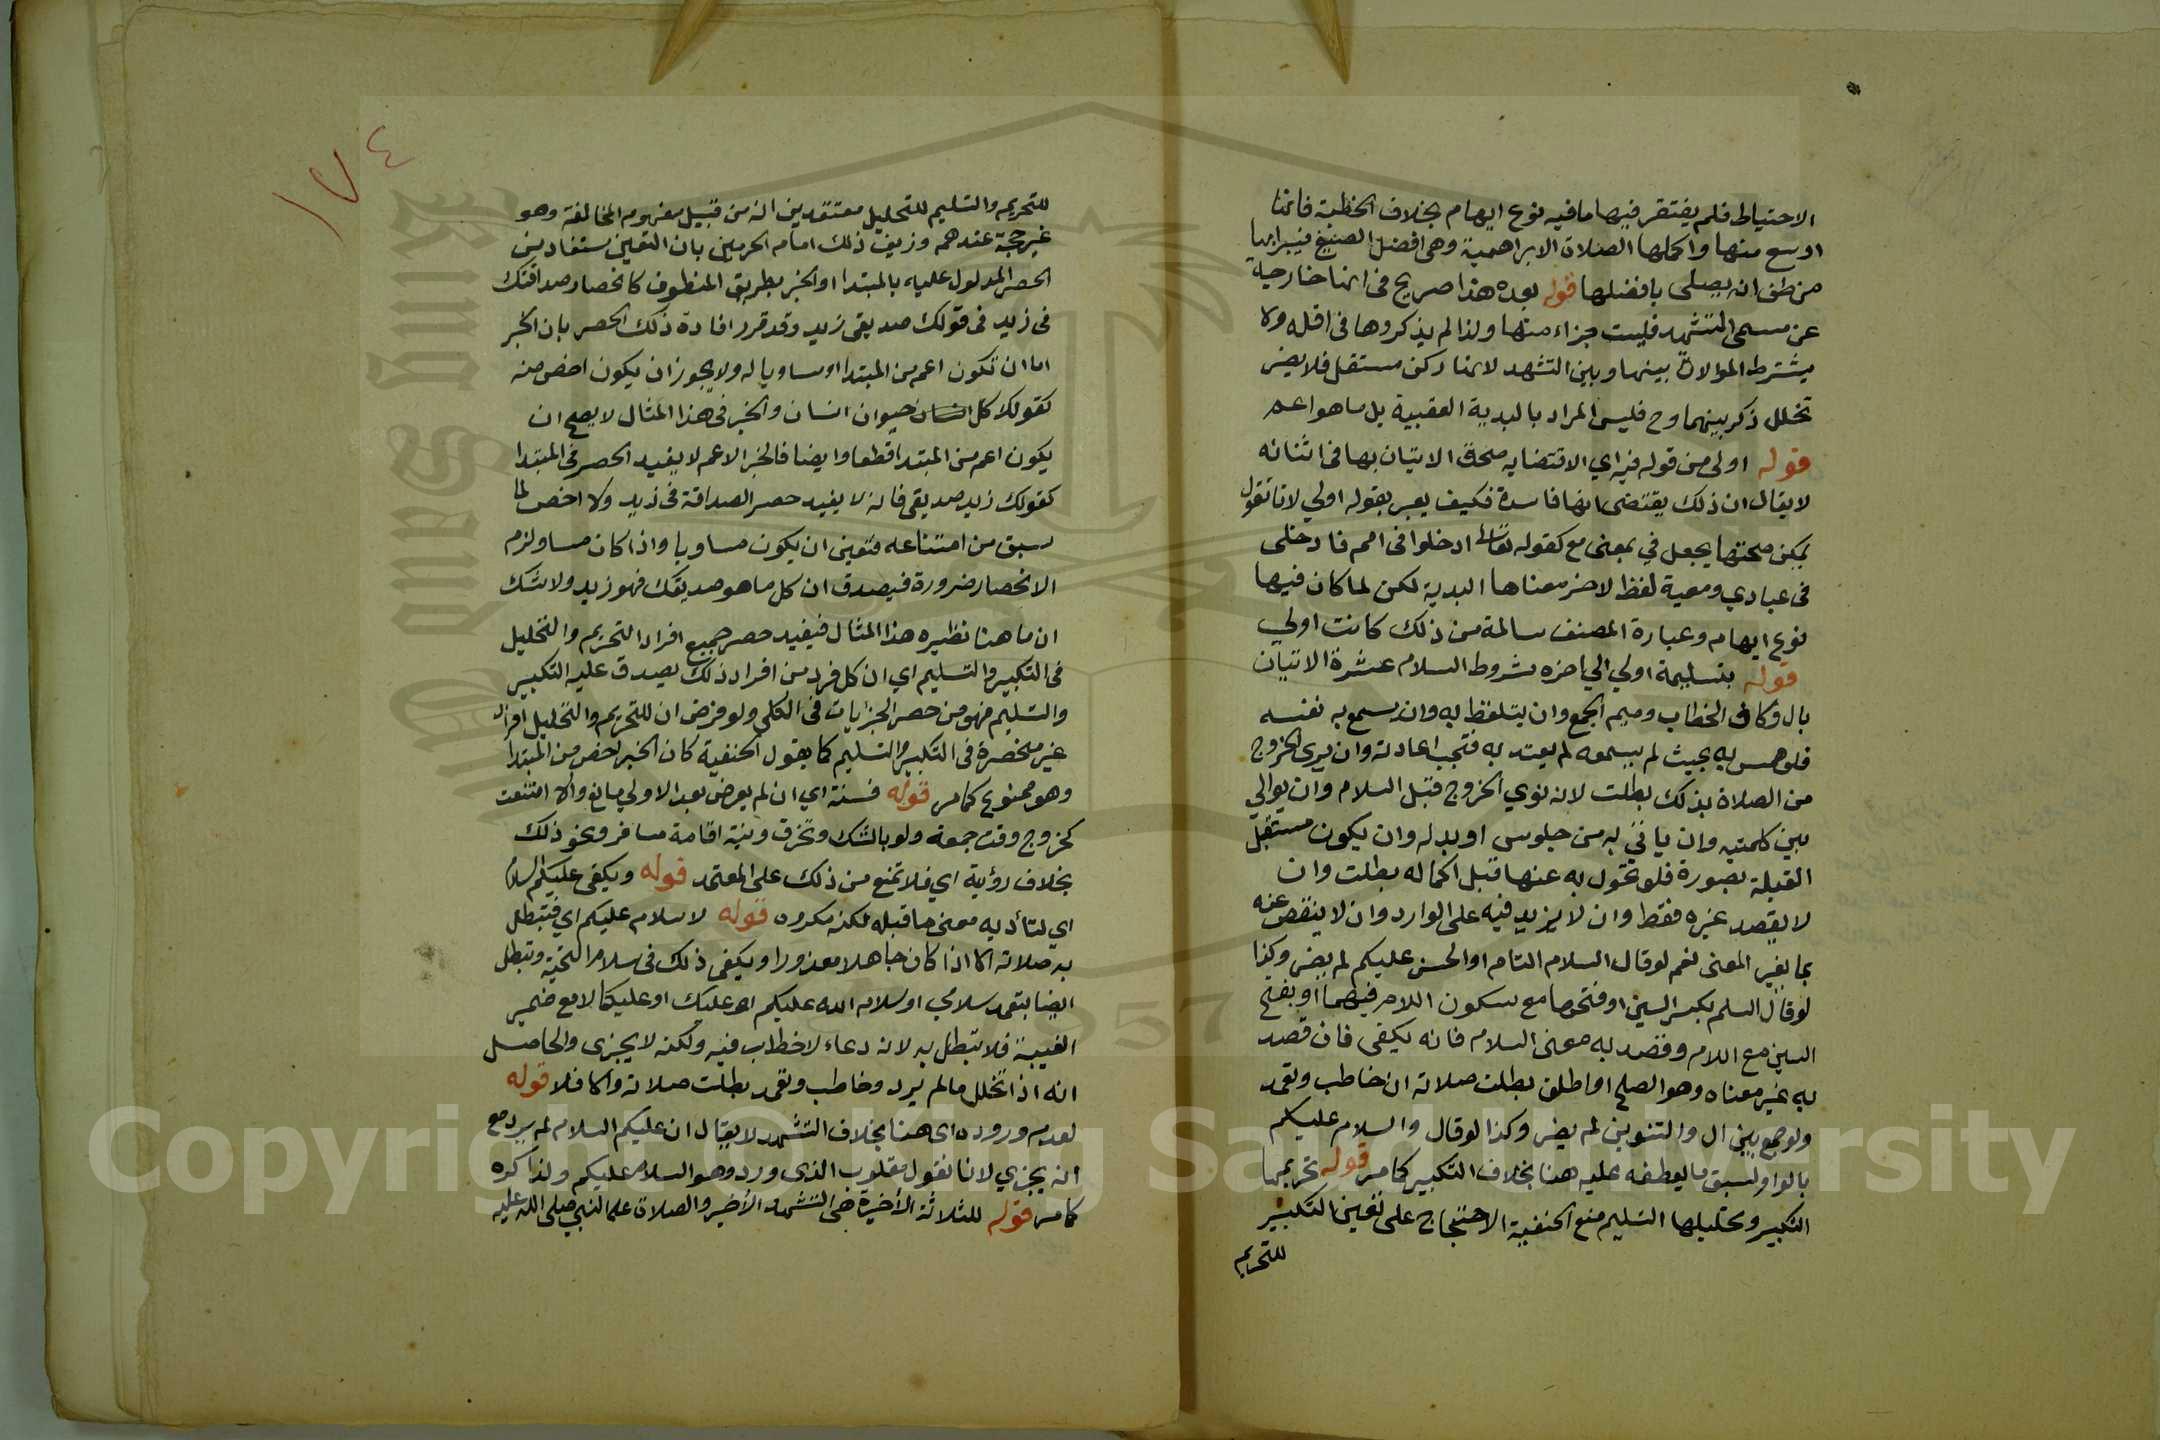 الاحتياط فلم يفتقر فيها ما فيه نوع ايهام بخلاف الخطبة فانها
اوسع منها واكملها الصلاة الابراهمية وهى افضل الصيغ فيبرا بها
من حلف ان يصلى بافضلها قوله بعده هذا صريح فى انها خارجة
عن مسمى التشهد فليست جزاء منها ولذا لم يذكروها فى اقله ولا
يشترط الموالاة بينها وبين التشهد لانها ركن مستقل فلا يضر
تخلل ذكر بينهما وح فليس المراد بالبدية العقبية بل ما هو اعم
قوله اولى من قوله فيه اي الاقتضايه صحة الاتيان بها فى اثنائه
لا يقال ان ذلك يقتضى انها فاسدة فكيف يعبر بقوله اولي لانا نقول
يمكن صحتها بجعل في بمعنى مع كقوله تعالى ادخلوا فى امم فادخلى
فى عبادي ومعية لفظ لاخر معناها البدية لكن لما كان فيها
نوع ايهام وعبارة المصنف سالمة من ذلك كانت اولي
قوله بتسليمة اولي الي اخره شروط السلام عشرة الاتيان
بال وكاف الخطاب وميم الجمع وان يتلفظ به وان يسمع به نفسه
فلو همس به بحيث لم يسمعه لم يعتد به فتجب اعادته وان نوى الخروج
من الصلاة بذلك بطلت لانه نوي الخروج قبل السلام وان يوالي
بين كلمتيه وان ياتي به من جلوس او بدله وان يكون مستقبل
القبلة بصورة فلو تحول به عنها قبل اكماله بطلت وان
لا يقصد غيره فقط وان لا يزيد فيه على الوارد وان لا ينقص عنه
بما يغير المعنى نعم لو قال السلام التام او الحسن عليكم لم يضر وكذا
لو قال السلم بكسر السين او فتحها مع سكون اللام فيهما او بفتح
السين مع اللام وقصد به معنى السلام فانه يكفى فان قصد
به غير معناه وهو الصلح او اطلق بطلت صلاته ان خاطب وتعمد
ولو جمع بين ال والتنوين لم يضر وكذا لو قال والسلام عليكم
بالواو لسبق ما يعطفه عليه هنا بخلاف التكبير كما مر قوله تحريمها
التكبير وتحليلها التسليم منع الحنفية الاحتجاج على تعين التكبير
للتحريم
١٧٤
للتحريم والتسليم للتحليل معتقدين انه من قبيل مفهوم المخالفة وهو
غير حجة عندهم وزيف ذلك امام الحرمين بان التعين مستفاد من
الحصر المدلول عليه بالمبتدا والخبر بطريق المنطوق كانحصار صداقتك
فى زيد فى قولك صديقى زيد وقد قرر افادة ذلك الحصر بان الخبر
اما ان تكون اعم من المبتدا او مساويا له ولا يجوز ان يكون اخص منه
كقولك كل حيوان انسان والخبر فى هذا المثال لا يصح ان
يكون اعم من المبتدا قطعا وايضا فالخبر الاعم لا يفيد الحصر فى المبتدا
كقولك زيد صديقى فانه لا يفيد حصر الصداقة فى زيد ولا اخص لما
سبق من امتناعه فتعين ان يكون مساويا واذا كان مساو لزم
الانحصار ضرورة فيصدق ان كل ما هو صديقك فهو زيد ولا شك
ان ما هنا نظيره هذا المثال فيفيد حصر جميع افراد التحريم والتحليل
فى التكبير والتسليم اي ان كل فرد من افراد ذلك يصدق عليه التكبير
والتسليم فهو من حصر الجزايات فى الكلى ولو فرض ان للتحريم والتحليل افراد
غير منحصرة فى التكبير والتسليم كما يقول الحنفية كان الخبر اخص من المبتدا
وهو ممنوع كما مر قوله فسنة اي ان لم يعرض بعد الاولي مانع والا امتنعت
كخروج وقت جمعة ولو بالشك وتخرق ونية اقامة مسافر ونحو ذلك
بخلاف رؤية اي فلا تمنع من ذلك على المعتمد قوله ويكفى عليكم السلام
اي لتأديه معنى ما قبله لكنه مكروه قوله لا سلام عليكم اي فتبطل
به صلاته الا اذا كان جاهلا معذورا ويكفى ذلك فى سلام التحية وتبطل
ايضا بتعمد سلامي او سلام الله عليكم او عليك او عليكما لا مع ضمير
الغيبة فلا تبطل به لانه دعاء لا خطاب فيه ولكنه لا يجزى والحاصل
انه اذا تخلل ما لم يرد وخاطب وتعمد بطلت صلاته والا فلا قوله
لعدم وروده اى هنا بخلاف التشهد لا يقال ان عليكم السلام لم يرد مع
انه يجزي لانا نقول مقلوب الذى ورد وهو السلام عليكم ولذا كره
كما مر قوله للثلاثة الأخيرة هى التشهد الأخير والصلاة على النبي صلى الله عليه
Copyright © King Saud University
1957